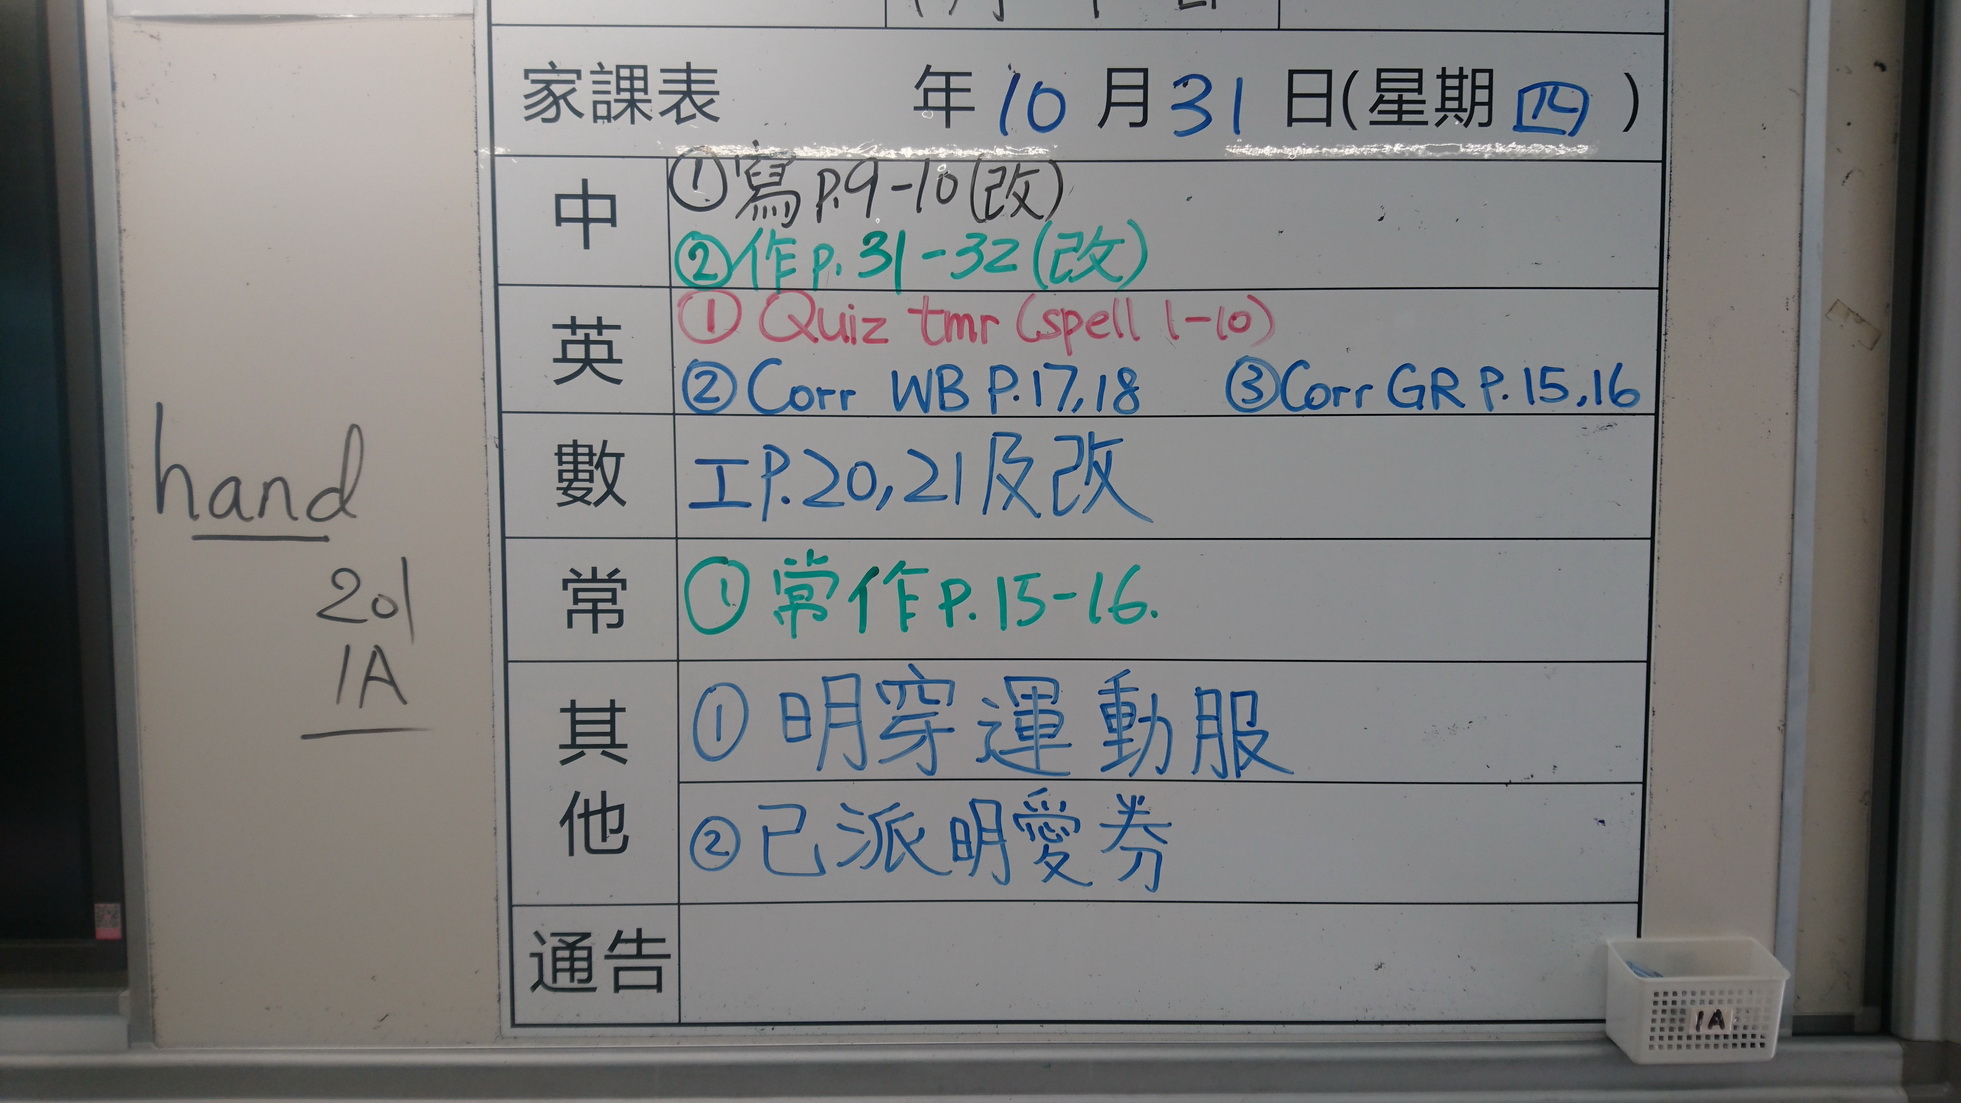 家課表 年 10 月 31 日(星期 四 )
中
①寫 p.9-10(改)
②作 p. 31-32 (改)
英
① Quiz tmr (spell 1-10)
② Corr WB P.17,18 ③ Corr GR P. 15,16
數
工P.20,21及改
常
① 常作 p.15-16.
其他
① 明穿運動服
② 已派明愛券
通告
hand
201
1A
1A